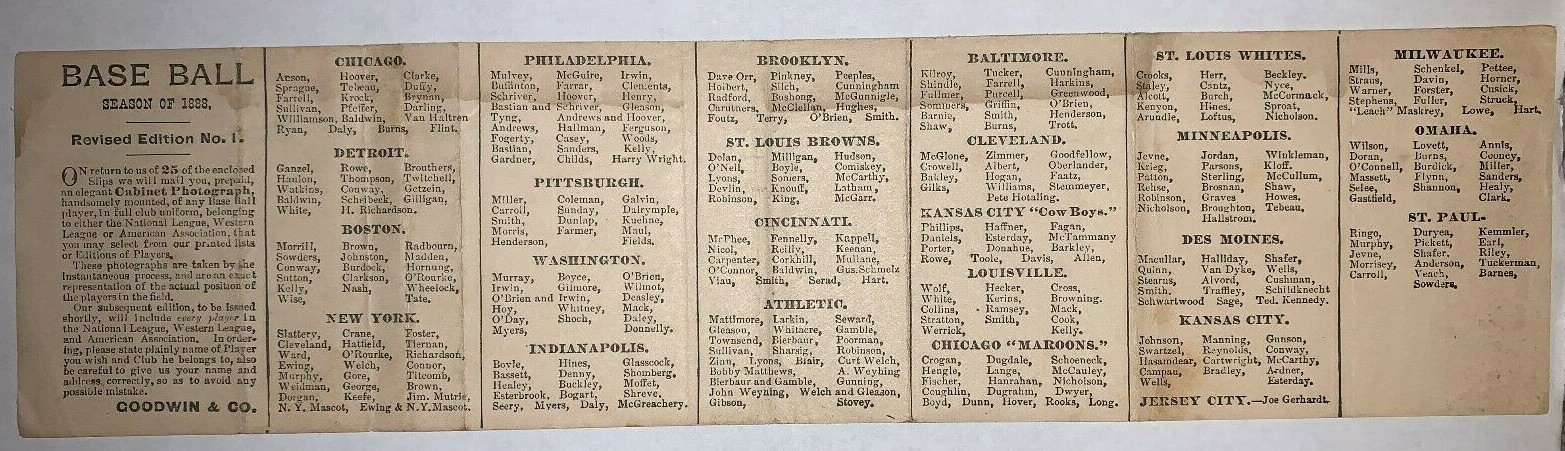 BASE BALL
SEASON OF 1888.
Revised Edition No. 1.
ON return to us of 25 of the enclosed
Slips we will mail you, prepaid,
an elegant Cabinet Photograph,
handsomely mounted, of any Base Ball
player, in full club uniform, belonging
to either the National League, Western
League or American Association, that
you may select from our printed lists
or Editions of Players.
These photographs are taken by the
instantaneous process, and are an exact
representation of the actual position of
the players in the field.
Our subsequent edition, to be issued
shortly, will include every player in
the National League, Western League,
and American Association. In order-
ing, please state plainly name of Player
you wish and Club he belongs to, also
be careful to give us your name and
address correctly, so as to avoid any
possible mistake.
GOODWIN & CO.
CHICAGO.
Anson, Hoover, Clarke,
Sprague, Tebeau, Duffy,
Farrell, Krock, Brynan,
Sullivan, Pfeffer, Darling,
Williamson, Baldwin, Van Haltren
Ryan, Daly, Burns, Flint.
DETROIT.
Ganzel, Rowe, Brouthers,
Hanlon, Thompson, Twitchell,
Watkins, Conway, Getzein,
Baldwin, Scheibeck, Gilligan,
White, H. Richardson.
BOSTON.
Morrill, Brown, Radbourn,
Sowders, Johnston, Madden,
Conway, Burdock, Hornung,
Sutton, Clarkson, O'Rourke,
Kelly, Nash, Wheelock,
Wise, Tate.
NEW YORK.
Slattery, Crane, Foster,
Cleveland, Hatfield, Tiernan,
Ward, O'Rourke, Richardson,
Ewing, Welch, Connor,
Murphy, Gore, Titcomb,
Weidman, George, Brown,
Dorgan, Keefe, Jim. Mutrie,
N. Y. Mascot, Ewing & N.Y.Mascot.
PHILADELPHIA.
Mulvey, McGuire, Irwin,
Buffinton, Farrar, Clements,
Schriver, Hoover, Henry,
Bastian and Schriver, Gleason,
Tyng, Andrews and Hoover,
Andrews, Hallman, Ferguson,
Fogerty, Casey, Woods,
Bastian, Sanders, Kelly,
Gardner, Childs, Harry Wright.
PITTSBURGH.
Miller, Coleman, Galvin,
Carroll, Sunday, Dalrymple,
Smith, Dunlap, Kuehne,
Morris, Farmer, Maul,
Henderson, Fields.
WASHINGTON.
Murray, Boyce, O'Brien,
Irwin, Gilmore, Wilmot,
O'Brien and Irwin, Deasley,
Hoy, Whitney, Mack,
O'Day, Shoch, Daley,
Myers, Donnelly.
INDIANAPOLIS.
Boyle, Hines, Glasscock,
Bassett, Denny, Shomberg,
Healey, Buckley, Moffet,
Esterbrook, Bogart, Shreve.
Seery, Myers, Daly, McGreachery.
BROOKLYN.
Dave Orr, Pinkney, Peeples,
Hoibert, Silch, Cunningham
Radford, Bushong, McGunnigle,
Carutners, McClellan, Hughes,
Foutz, Terry, O'Brien, Smith.
ST. LOUIS BROWNS.
Dolan, Milligan, Hudson,
O'Neil, Boyle, Comiskey,
Lyons, Somers, McCarthy,
Devlin, Knouff, Latham,
Robinson, King, McGarr.
CINCINNATI.
McPhee, Fennelly, Kappell,
Nicol, Reilly, Keenan,
Carpenter, Corkhill, Mullane,
O'Connor, Baldwin, Gus.Schmelz
Viau, Smith, Serad, Hart.
ATHLETIC.
Mattimore, Larkin, Seward,
Gleason, Whitacre, Gamble,
Townsend, Bierbaur, Poorman,
Sullivan, Sharsig, Robinson,
Zinn, Lyons, Blair, Curt Welch,
Bobby Matthews, A. Weyhing
Bierbaur and Gamble, Gunning,
John Weyning, Welch and Gleason,
Gibson, Stovey.
BALTIMORE.
Kilroy, Tucker, Cunningham,
Shindle, Farrell, Harkins,
Fullmer, Purcell, Greenwood,
Sommers, Griffin, O'Brien,
Barnie, Smith, Henderson,
Shaw, Burns, Trott.
CLEVELAND.
McGlone, Zimmer, Goodfellow,
Crowell, Albert, Oberlander,
Bakley, Hogan, Faatz,
Gilks, Williams, Stemmeyer,
Pete Hotaling.
KANSAS CITY "Cow Boys."
Phillips, Haffner, Fagan,
Daniels, Esterday, McTammany
Porter, Donahue, Barkley,
Rowe, Toole, Davis, Allen,
LOUISVILLE.
Wolf, Hecker, Cross,
White, Kerins, Browning.
Collins, Ramsey, Mack,
Stratton, Smith, Cook,
Werrick, Kelly.
CHICAGO "MAROONS."
Crogan, Dugdale, Schoeneck,
Hengle, Lange, McCauley,
Fischer, Hanrahan, Nicholson,
Coughlin, Dugrahm, Dwyer,
Boyd, Dunn, Hover, Rooks, Long.
ST. LOUIS WHITES.
Crooks, Herr, Beckley.
Staley, Cantz, Nyce,
Alcott, Burch, McCormack,
Kenyon, Hines, Sproat,
Arundle, Loftus, Nicholson.
MINNEAPOLIS.
Jevne, Jordan, Winkleman,
Krieg, Parsons, Kloff
Patton, Sterling, McCullum,
Rehse, Brosnan, Shaw,
Robinson, Graves Howes.
Nicholson, Broughton, Tebeau,
Hallstrom.
DES MOINES.
Macullar, Halliday, Shafer,
Quinn, Van Dyke, Wells,
Stearns, Alvord, Cushman,
Smith, Traffley, Schildknecht
Schwartwood Sage, Ted. Kennedy.
KANSAS CITY.
Johnson, Manning, Gunson,
Swartzel, Reynolds, Conway,
Hasamdear, Cartwright, McCarthy,
Campau, Bradley, Ardner,
Wells, Esterday.
JERSEY CITY.—Joe Gerhardt.
MILWAUKEE.
Mills, Schenkel, Pettee,
Straus, Davin, Horner,
Warner, Forster, Cusick,
Stephens, Fuller, Struck,
"Leach" Maskrey, Lowe, Hart.
OMAHA.
Wilson, Lovett, Annis,
Doran, Burns, Cooney,
O'Connell, Burdick, Miller,
Massett, Flynn, Sanders,
Selee, Shannon, Healy,
Gastfield, Clark.
ST. PAUL-
Ringo, Duryea, Kemmler,
Murphy, Pickett, Earl,
Jevne, Shafer, Riley,
Morrisey, Anderson, Tuckerman,
Carroll, Veach, Barnes,
Sowders.